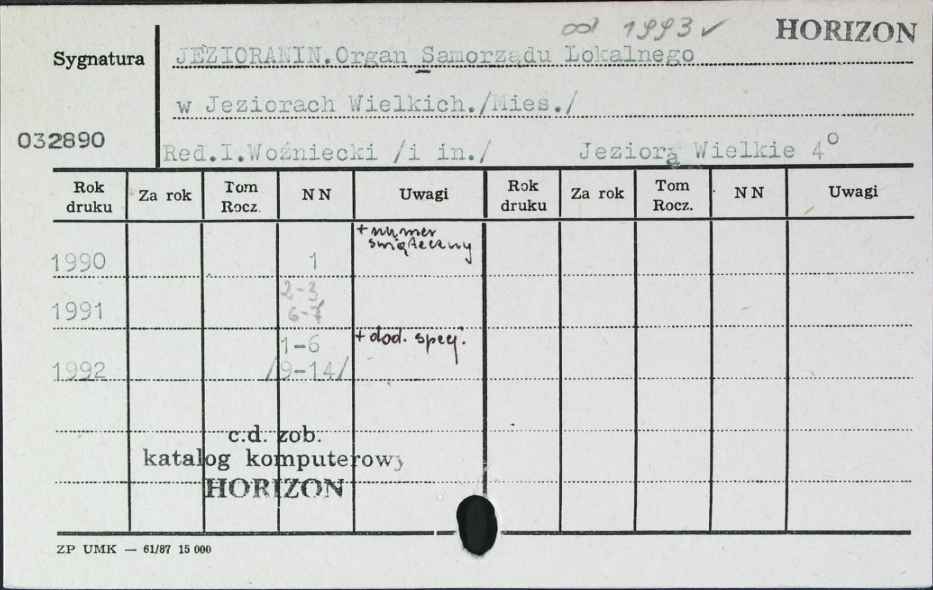 od 1993 ✓ HORIZON
Sygnatura JEZIORANIN.Organ Samorządu Lokalnego
w Jeziorach Wielkich./Mies./
032890
Red.I.Woźniecki /i in./ Jeziorą Wielkie 4°
Rok druku Za rok Tom Rocz. N N Uwagi Rok druku Za rok Tom Rocz. N N Uwagi
+ numer
świąteczny
1990 1
2-3
1991 6-7
1-6 + dod. specj.
1992 /9-14/
c.d. zob.
katalog komputerowy
HORIZON
ZP UMK — 61/87 15 000